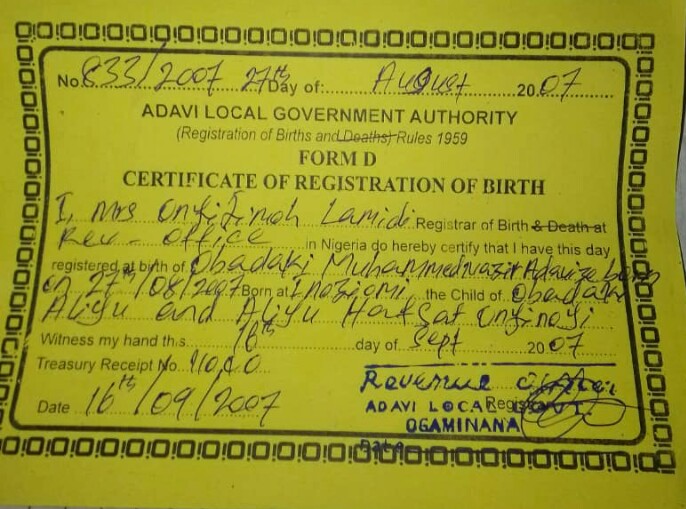 No. 833/2007 27th Day of: August 2007
ADAVI LOCAL GOVERNMENT AUTHORITY
(Registration of Births and Deaths) Rules 1959
FORM D
CERTIFICATE OF REGISTRATION OF BIRTH
I, Mrs Lamidi Registrar of Birth & Death at
Rev - office in Nigeria do hereby certify that I have this day
registered at birth of Obadaki Muhammednazir Adavize born
on 27th/08/2007 Born at Inoziomi the Child of Obadaki
Aliyu and Aliyu
Witness my hand this 16th day of Sept 2007
Treasury Receipt No.
Date 16th/09/2007
Revenue Registrar
ADAVI LOCAL GOVT.
OGAMINANA
Date